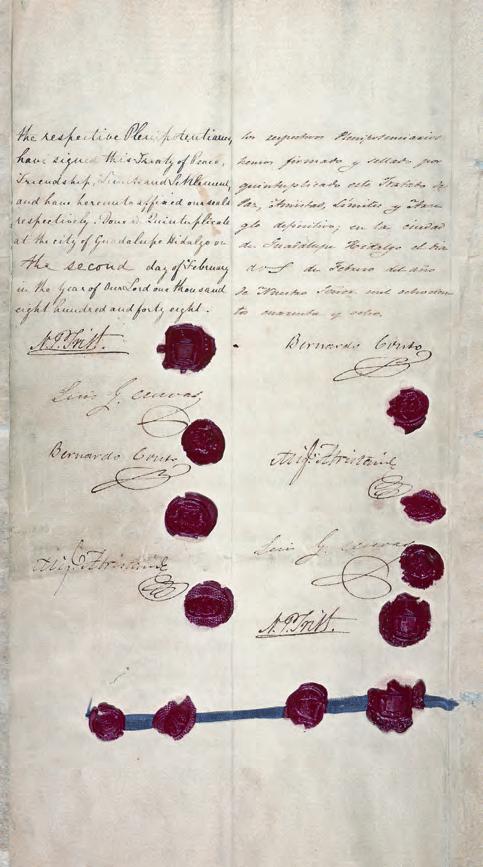 the respective Plenipotentiaries
have signed this Treaty of Peace,
Friendship, Limits and Settlement,
and have hereunto affixed our seals
respectively. Done in Quintuplicate
at the city of Guadalupe Hidalgo on
the second day of February
in the year of Our Lord one thousand
eight hundred and forty eight.
N. P. Trist.
Luis G. Cuevas
Bernardo Couto
Migl. Atristain
los respectivos Plenipotenciarios
hemos firmado y sellado por
quintuplicado este Tratado de
Paz, Amistad, Limites y Arre
glo definitivo; en la ciudad
de Guadalupe Hidalgo el dia
dos de Febrero del año
de Nuestro Señor mil ochocien
tos cuarenta y ocho.
Bernardo Couto
Migl. Atristain
Luis G. Cuevas
N. P. Trist.